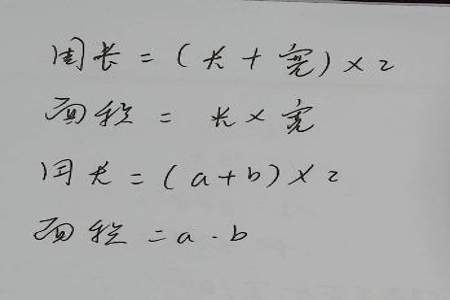 周长=(长+宽)×2
面积=长×宽
周长=(a+b)×2
面积=a·b